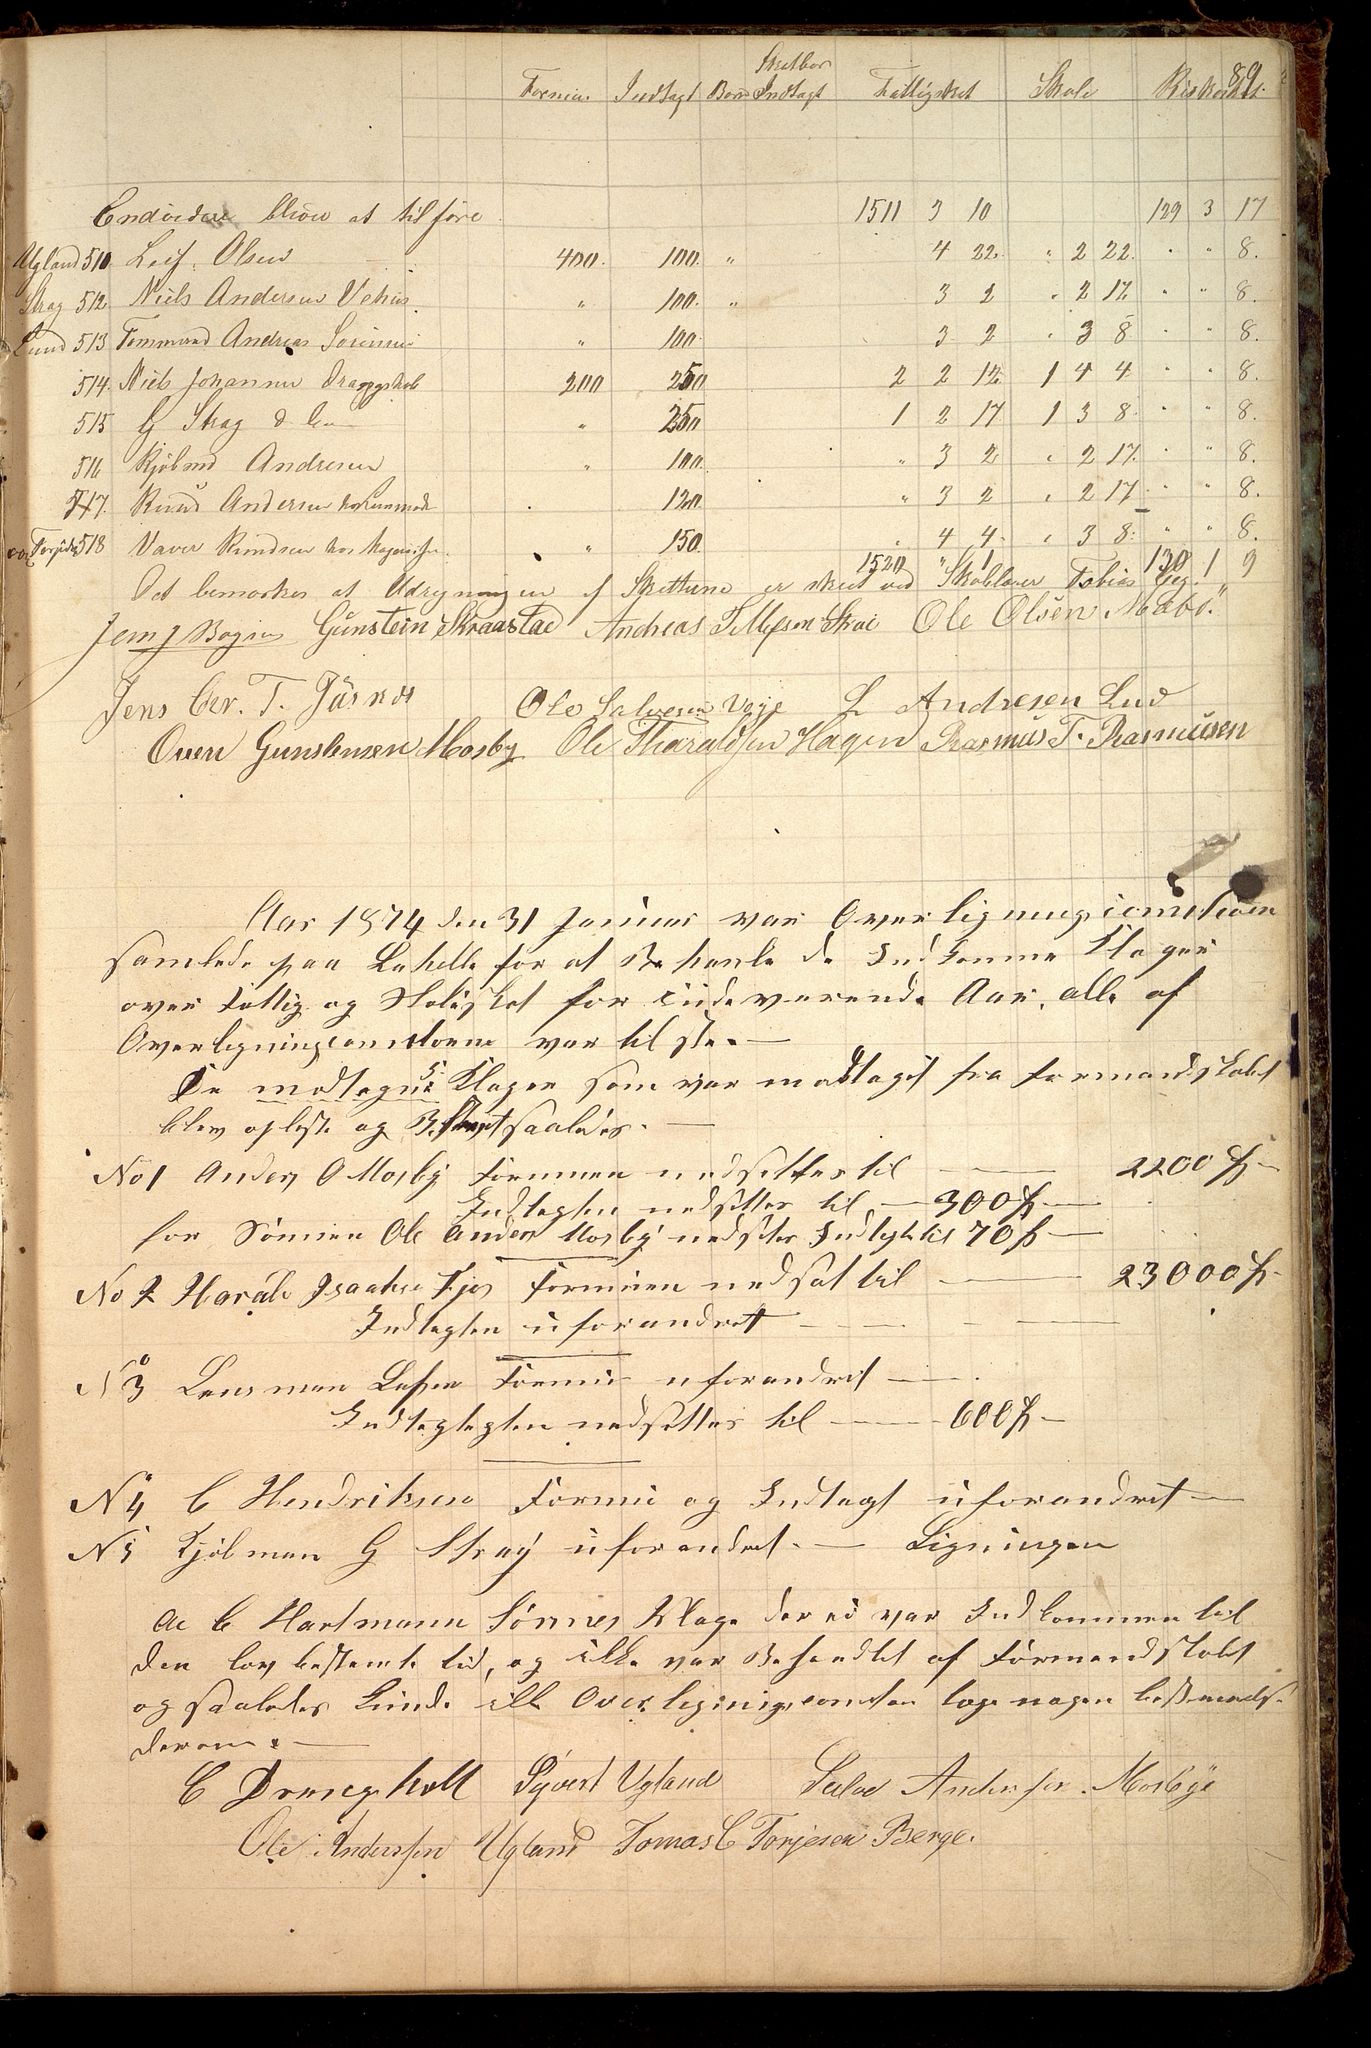 89
Skatbar
Formue. Indtægt Børn Indtægt Fattigskat Skole
Endvidere bliver at tilføre 1511 3 10 129 3 17
Ugland 510 Leif Olsen 400. 100. " 4 22. " 2 22. " " 8.
Strag 512 Niels Andersen " 100. " 3 2 " 2 17. " " 8.
Lund 513 Tømmermand Andreas " 100. 3 2 " 3 8 " " 8.
514. Niels Johannes 200 250 2 2 12. 1 4 4 " " 8.
515 G Stray & " 250 1 2 17 1 3 8 " " 8.
516 Kjøbmd Andresen " 100. " 3 2 " 2 17. " " 8.
517. Knud Andersen 120. " 3 2 " 2 17. " " 8.
518 Knudsen hos " 150. " 4 4. " 3 8. " " 8.
1520 " 1 130 1 9
Det bemærkes at Udregningen af Skatterne er skeet ved Skolelærer Tobias
Gunstein Skraastad Andreas Tellefsen Skai Ole Olsen Mæbø.
Jens Chr. T. Ole Salvesen Veje L Andresen Lund
Oven Gunstensen Mosby Ole Tharaldsen Hagen Rasmus T. Rasmusen
Aar 1874 den 31 Januar var Overligningscomiteen
samlede paa Lahelle for at Behandle de Indkomne Klager
over Fattig og Skoleskat for indeværende Aar, alle af
Overligningscomiteens var til stede. —
De modtagne 5 Klager som var modtaget fra Formandskabet
blev oplæste og Bestemt saaledes. —
No 1 Anders O Mosby Formuen nedsættes til — 2200 Sp —
Indtægten nedsættes til — 300 Sp —
for Sønnen Ole Anders Mosby nedsættes Indtægt til 70 Sp —
No 2 Harald Isaaksen Fjos Formuen nedsat til — 23000 Sp —
Indtægten uforandret —
No 3 Lensman Formue uforandret —
Indtægtægten nedsættes til — 600 Sp —
No 4 C Hendriksen Formue og Indtægt uforandret —
No 5 Kjøbman G Stray uforandret. — Ligningen
C Hartmann Sønnes Klage der ei var Indkommen til
den lovbestemte tid, og ikke var Behandlet af Formandskabet
og saaledes kunde ikke Overligningscomiteen tage nogen
derom. —
C Drangsholt Syvert Ugland Salve Andersen Mosbye
Ole Anderssen Ugland Tomas C Torjesen Berge.